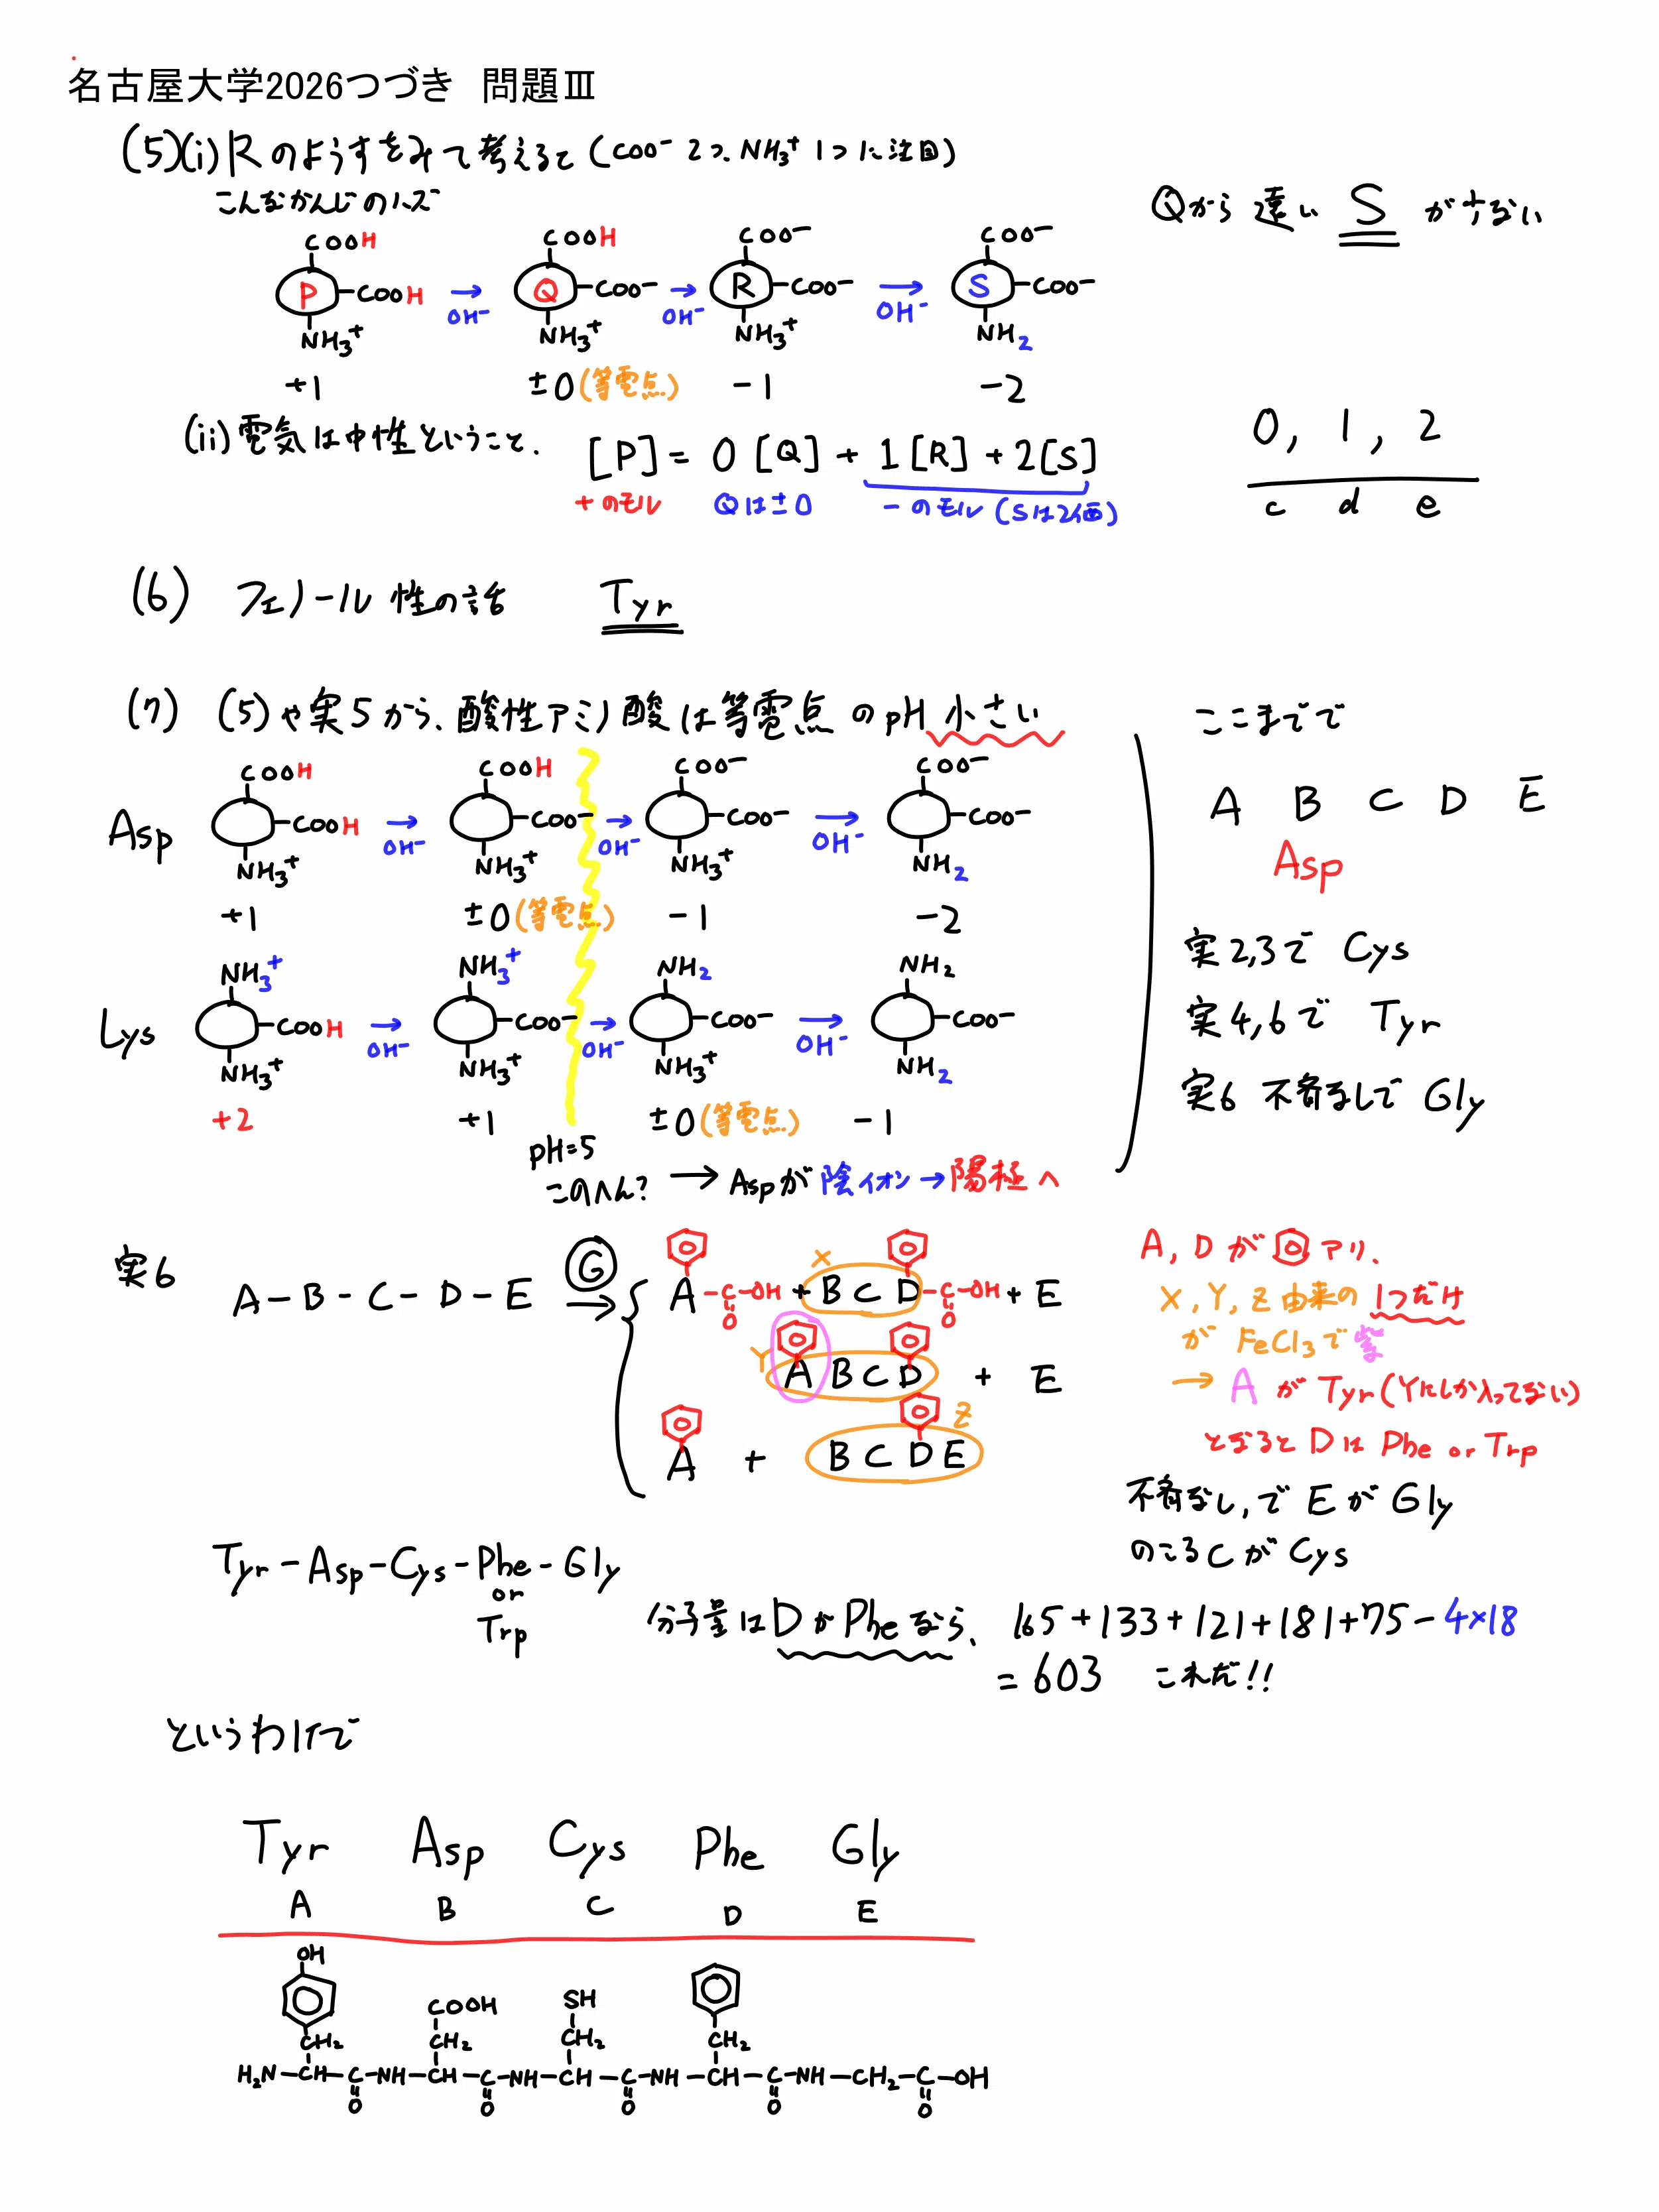 名古屋大学2026つづき 問題Ⅲ
(5)(i) Rのようすをみて考えると (COO⁻ 2つ、NH₃⁺ 1つに注目)
こんなかんじのハズ
Qから遠い S が少ない
COOH COOH COO⁻ COO⁻
P -COOH → OH⁻ Q -COO⁻ → OH⁻ R -COO⁻ → OH⁻ S -COO⁻
NH₃⁺ NH₃⁺ NH₃⁺ NH₂
+1 ±0(等電点) -1 -2
(ii) 電気は中性ということ.
[P] = 0[Q] + 1[R] + 2[S]
+のモル Qは±0 -のモル (Sは2価)
0, 1, 2
c d e
(6) フェノール性の話 Tyr
(7) (5)や実5から、酸性アミノ酸は等電点のpH小さい
COOH COOH COO⁻ COO⁻
Asp -COOH → OH⁻ -COO⁻ → OH⁻ -COO⁻ → OH⁻ -COO⁻
NH₃⁺ NH₃⁺ NH₃⁺ NH₂
+1 ±0(等電点) -1 -2
NH₃⁺ NH₃⁺ NH₂ NH₂
Lys -COOH → OH⁻ -COO⁻ → OH⁻ -COO⁻ → OH⁻ -COO⁻
NH₃⁺ NH₃⁺ NH₃⁺ NH₂
+2 +1 ±0(等電点) -1
pH=5
このへん? → Aspが陰イオン→陽極へ
ここまでで
A B C D E
Asp
実2,3で Cys
実4,6で Tyr
実6 不斉なしで Gly
実6 A-B-C-D-E G →
A-C-OH + BCD-C-OH + E
O X O
Y ABCD + E
A + BCDE Z
A, D が アリ.
X, Y, Z由来の1つだけ
が FeCl₃で紫
→ A が Tyr (Yにしか入ってない)
となると Dは Phe or Trp
不斉なし,で EがGly
のこるCがCys
Tyr-Asp-Cys-Phe-Gly
or
Trp
分子量はDがPheなら、 165+133+121+181+75-4×18
=603 これだ!!
というわけで
Tyr Asp Cys Phe Gly
A B C D E
OH
COOH SH
CH₂ CH₂ CH₂ CH₂
H₂N-CH-C-NH-CH-C-NH-CH-C-NH-CH-C-NH-CH₂-C-OH
O O O O O